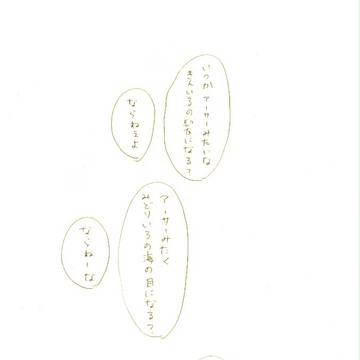 いつか アーサーみたいな
きんいろの髪になる?
ならねぇよ
アーサーみたく
みどりいろの海の目になる?
ならねーな